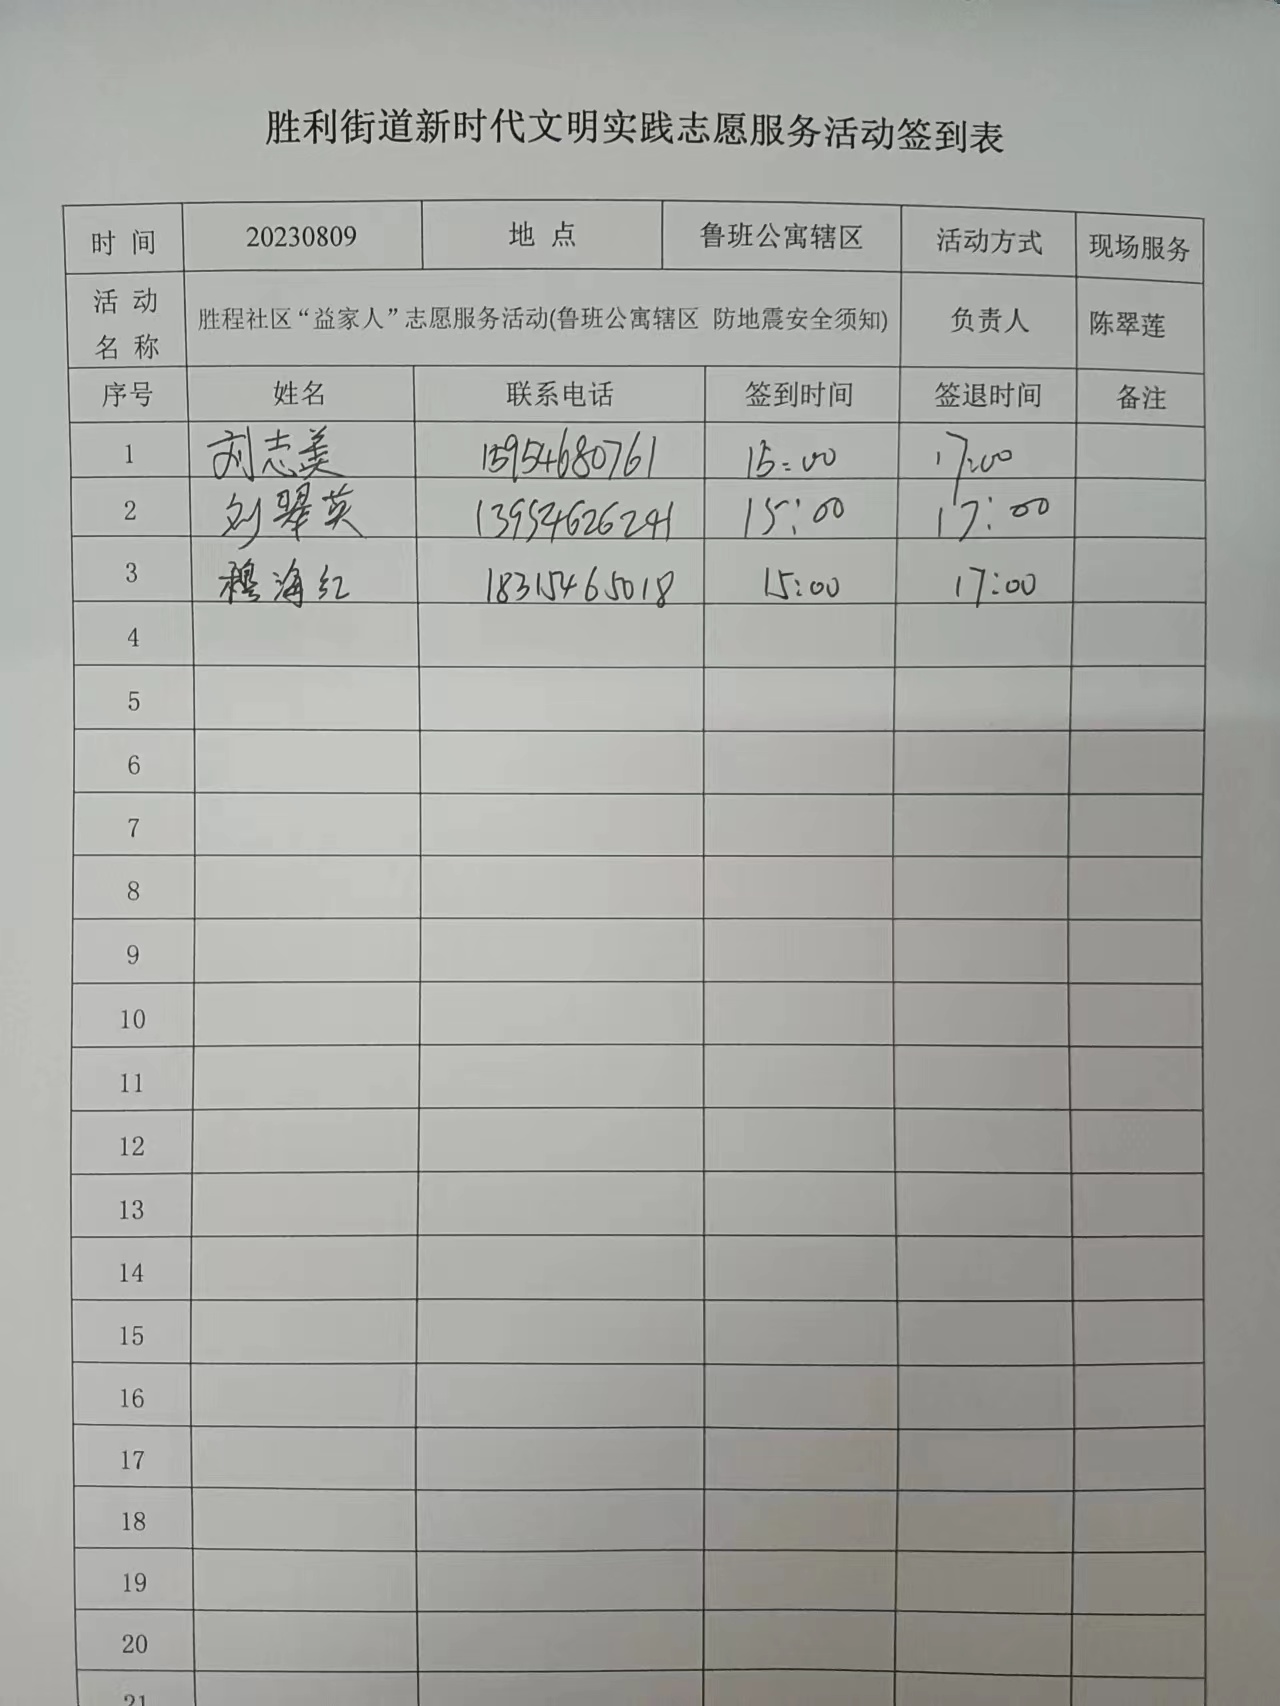 胜利街道新时代文明实践志愿服务活动签到表
时 间 20230809 地 点 鲁班公寓辖区 活动方式 现场服务
活 动 名 称 胜程社区“益家人”志愿服务活动(鲁班公寓辖区 防地震安全须知) 负责人 陈翠莲
序号 姓名 联系电话 签到时间 签退时间 备注
1 刘志美 15954680761 15:00 17:00
2 刘翠英 13954626241 15:00 17:00
3 穆海红 18315465018 15:00 17:00
4
5
6
7
8
9
10
11
12
13
14
15
16
17
18
19
20
21